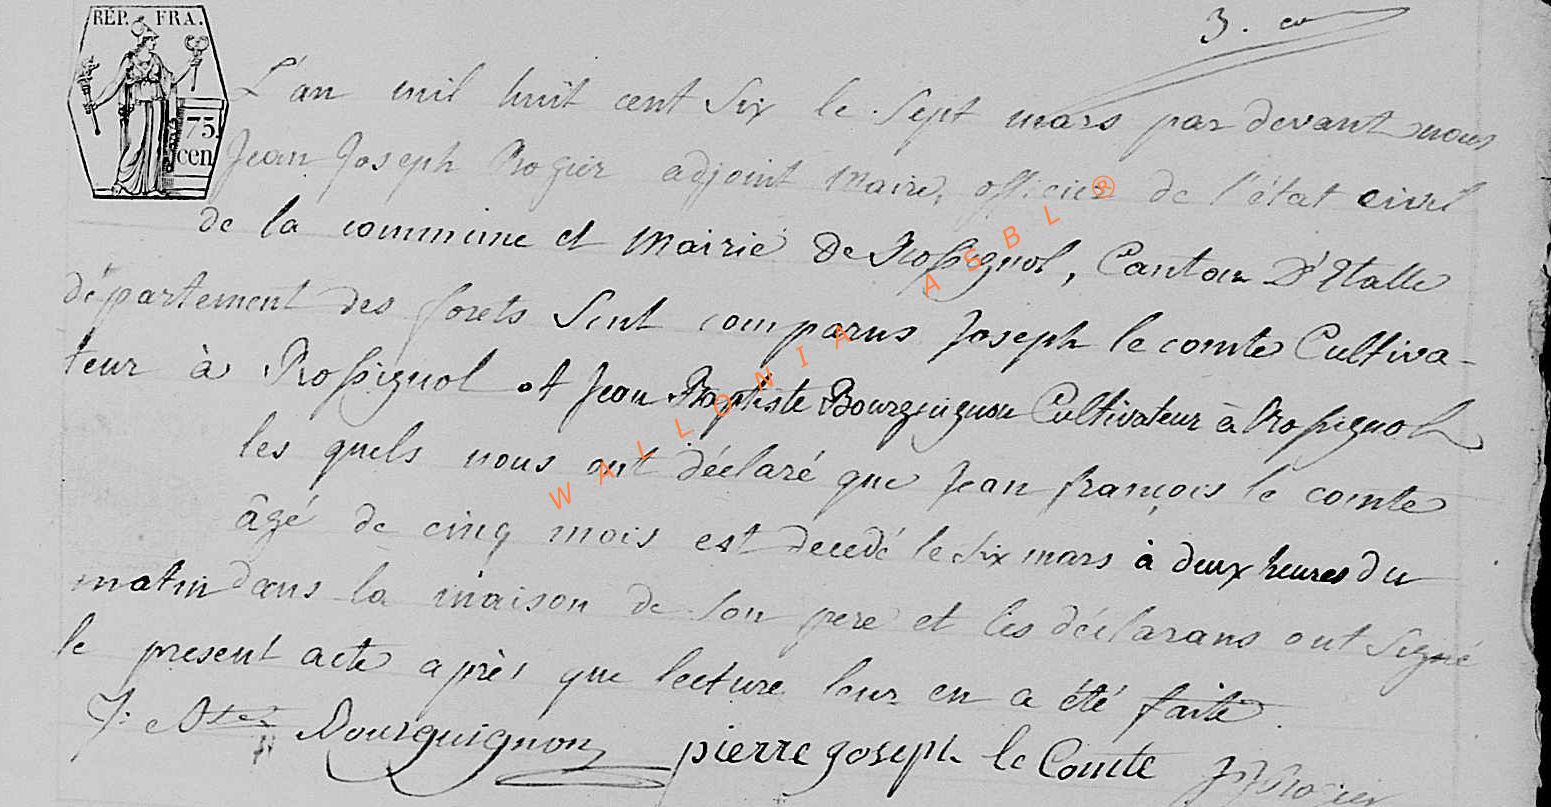 3. ca
RÉP. FRA.
75
cen
L'an mil huit cent Six le Sept mars par devant nous
Jean Joseph Rogier adjoint Maire, officier de l'état civil
de la commune et Mairie de Rossignol, Canton D'Etalle
département des forets Sont comparus Joseph le comte Cultiva-
teur à Rossignol et Jean Baptiste Bourguignon Cultivateur à Rossignol
les quels nous ont déclaré que Jean françois le comte
âgé de cinq mois est decedé le Six mars à deux heures du
matin dans la maison de Son pere et les déclarans ont Signé
le present acte après que lecture leur en a été faite.
J: Bte Bourguignon pierre joseph le Comte JJ Rogier
WALLONIA ASBL ®